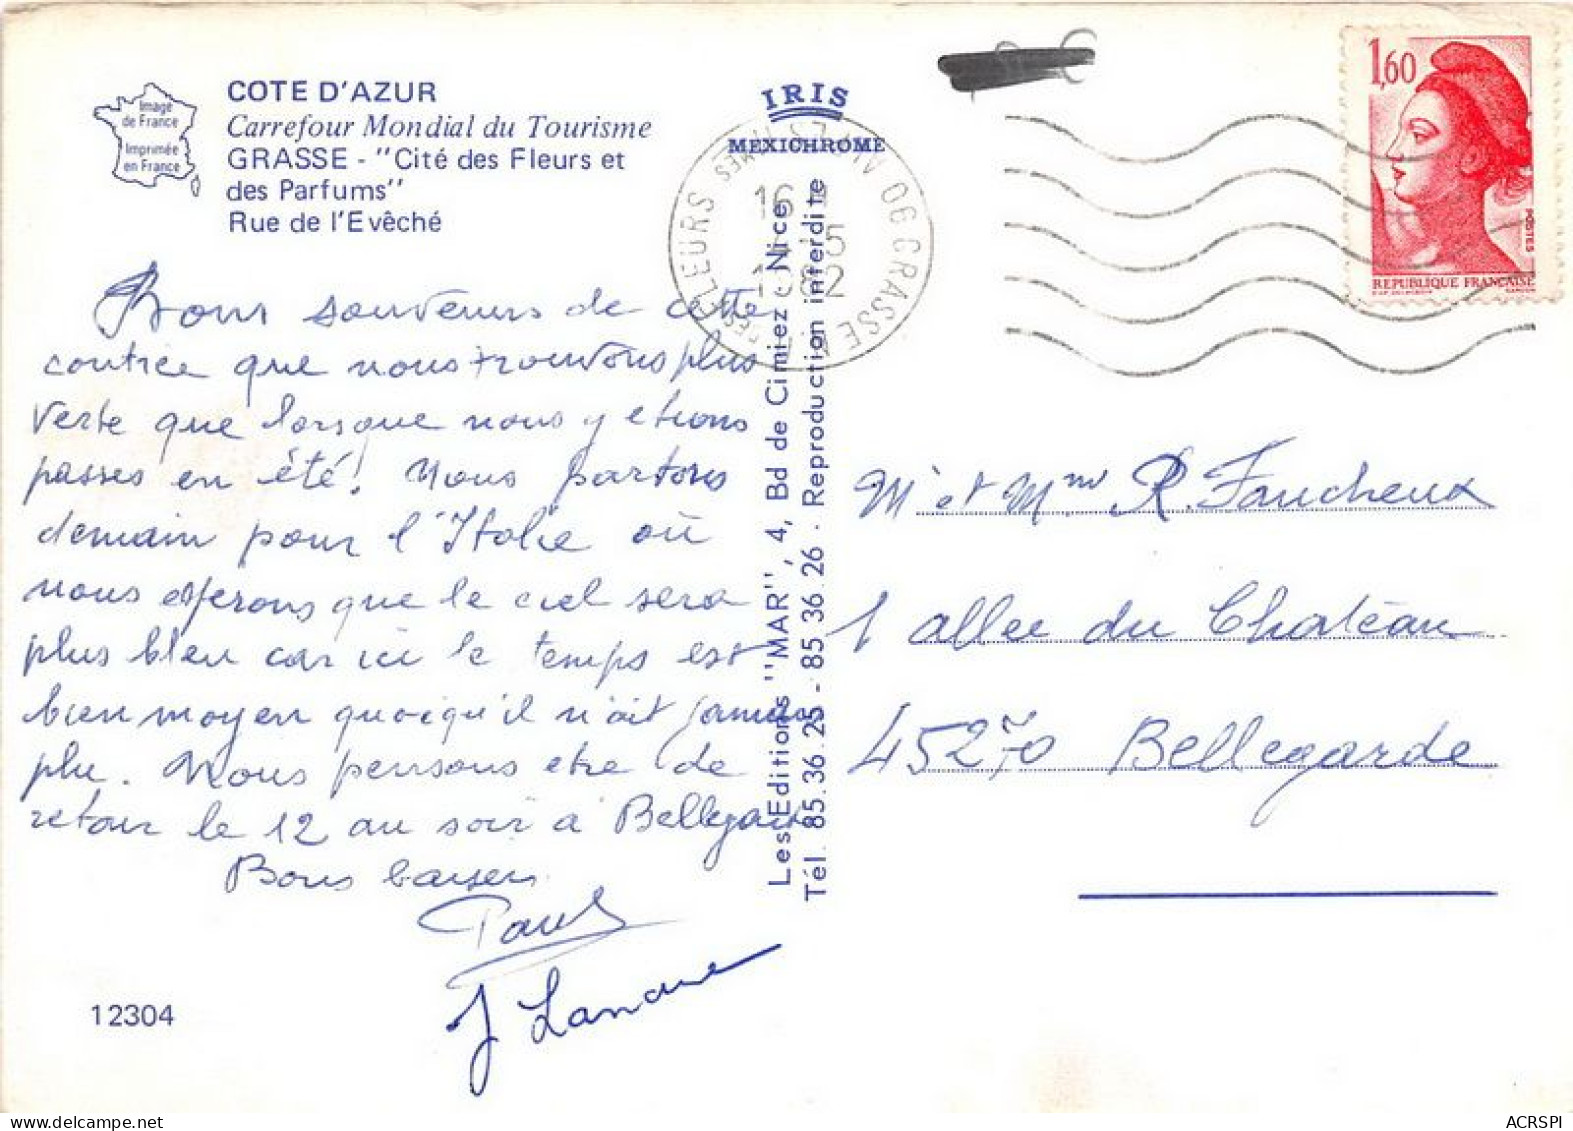 COTE D'AZUR
Carrefour Mondial du Tourisme
GRASSE - "Cité des Fleurs et
des Parfums"
Rue de l'Evêché
Image
de France
Imprimée
en France
Bons souvenirs de cette
contrée que nous trouvons plus
verte que lorsque nous y etions
passes en été! Nous partons
demain pour l'Italie où
nous esperons que le ciel sera
plus bleu car ici le temps est
bien moyen quoiqu'il n'ait jamais
plu. Nous pensons etre de
retour le 12 au soir à Bellegarde
Bons baisers
Paul
J
12304
IRIS
MEXICHROME
Les Editions "MAR", 4, Bd de Cimiez - Nice
Tél. 85.36.25 - 85.36.26 - Reproduction interdite
06 GRASSE
16
5
1982
FLEURS
1,60
POSTES
REPUBLIQUE FRANÇAISE
Mr et Mme R. Faucheux
1 allee du Chatéau
45270 Bellegarde
ACRSPI